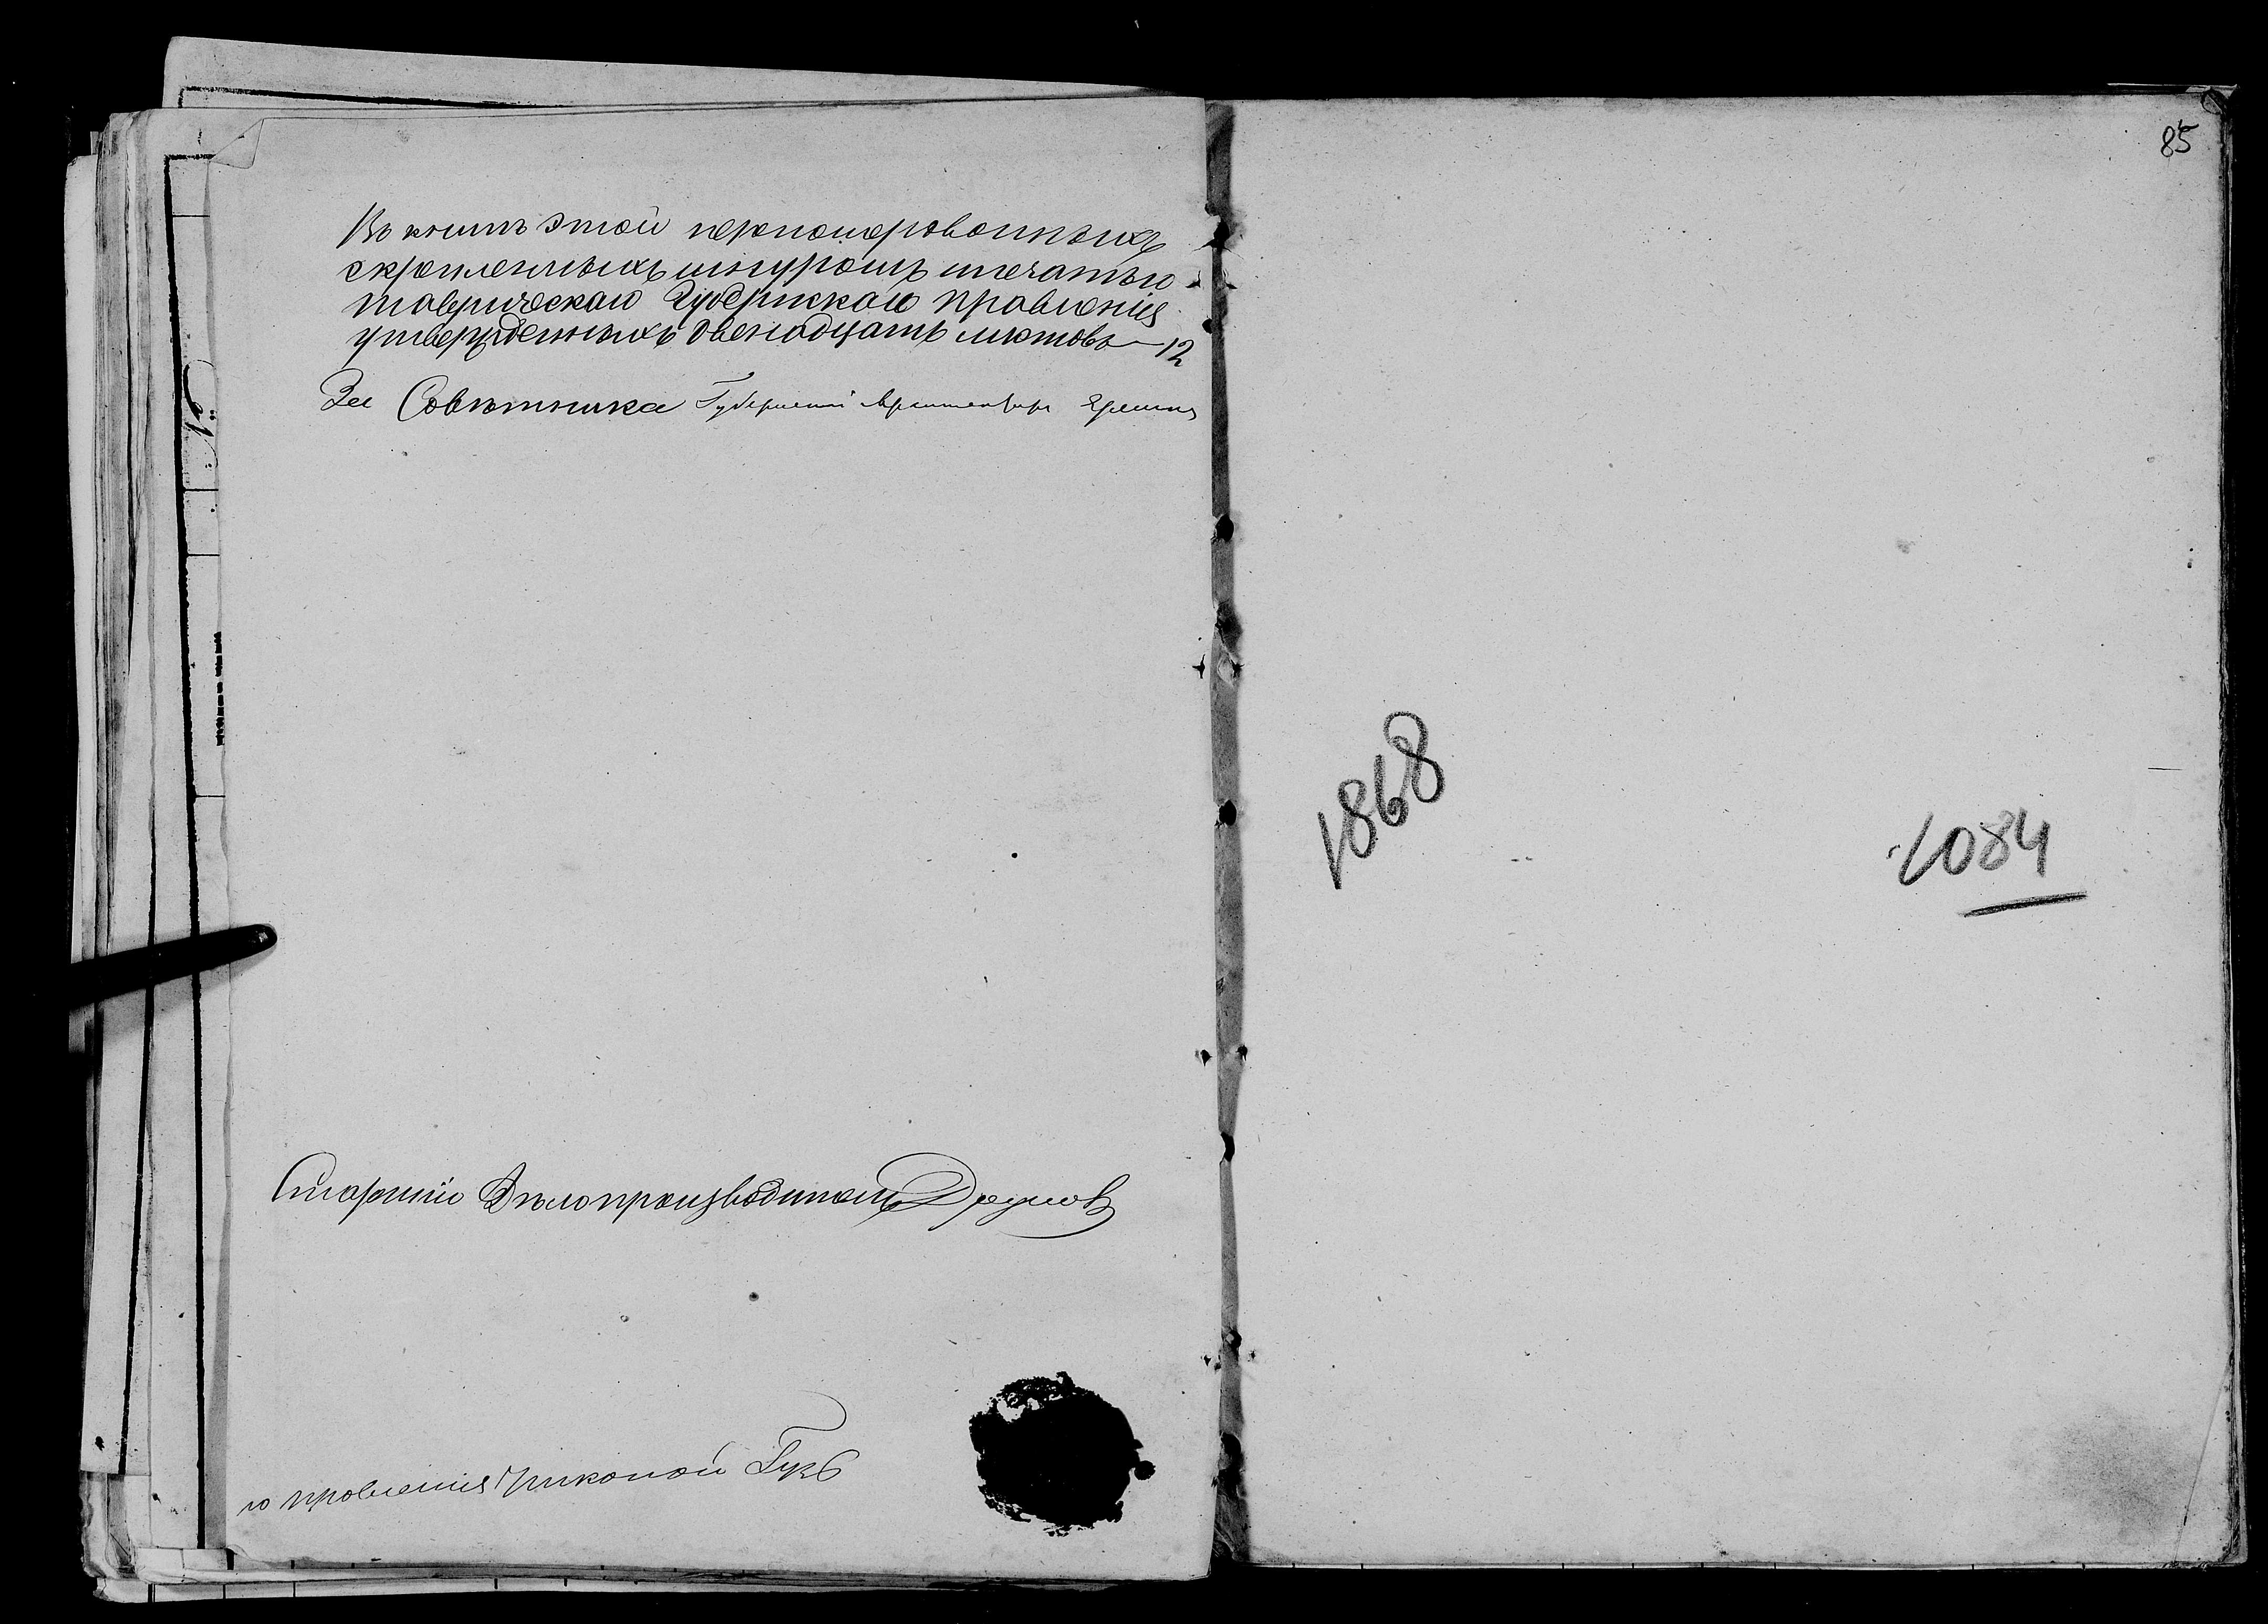 Въ книгѣ этой перономерованныхъ
скрѣпленныхъ шнуромъ и печатью
таврическаго Губернскаго правленія
утвержденныхъ двенадцать листовъ — 12
За Совѣтника Губернскій
Старшій Дѣлопроизводитель
го правленія Чиковой Губ
85
1868
1084
№